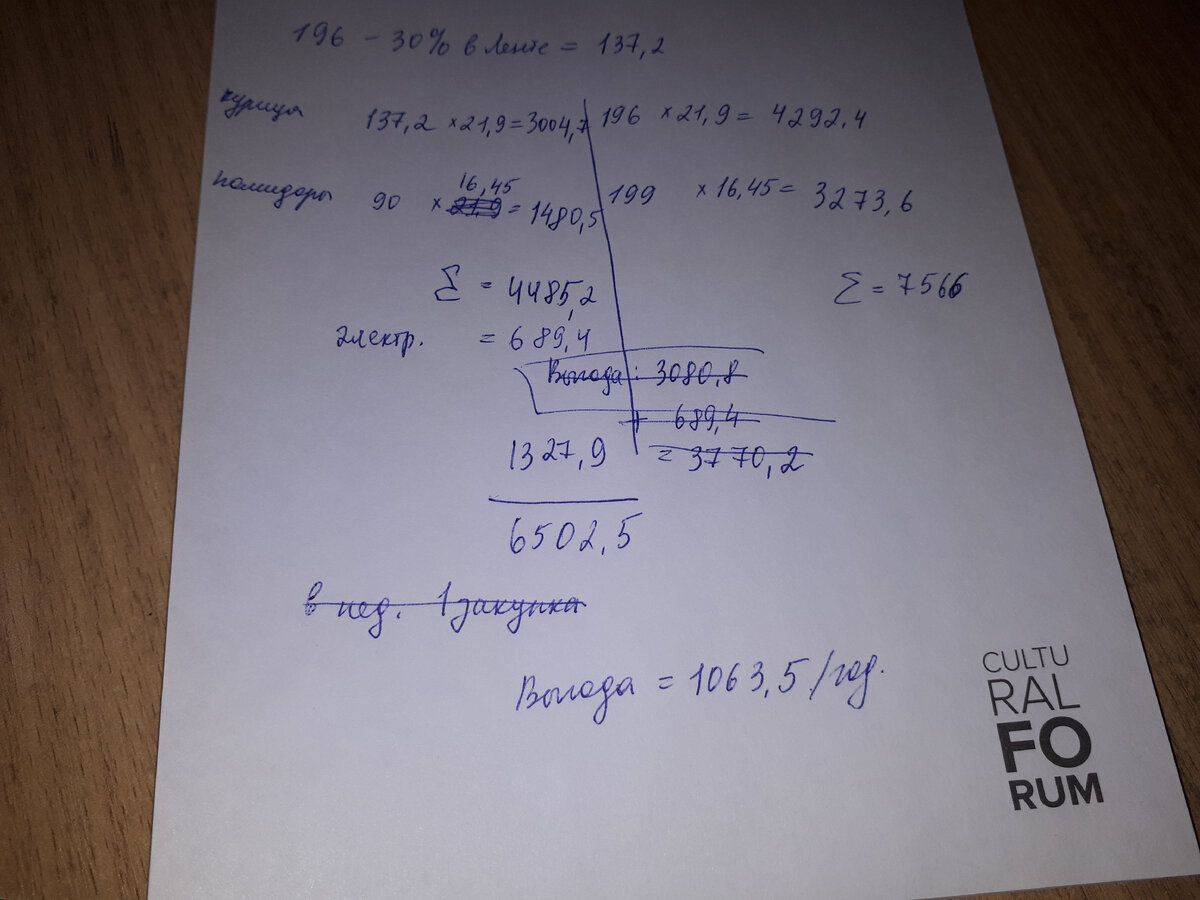 196 - 30% в Ленте = 137,2
курица 137,2 × 21,9 = 3004,7 196 × 21,9 = 4292,4
помидоры 90 × 21,9 16,45 = 1480,5 199 × 16,45 = 3273,6
Σ = 4485,2 Σ = 7566
электр. = 689,4
Выгода: 3080,8
+ 689,4
1327,9 = 3770,2
6502,5
в нед. 1 закупка
Выгода = 1063,5 / год.
CULTU
RAL
FO
RUM